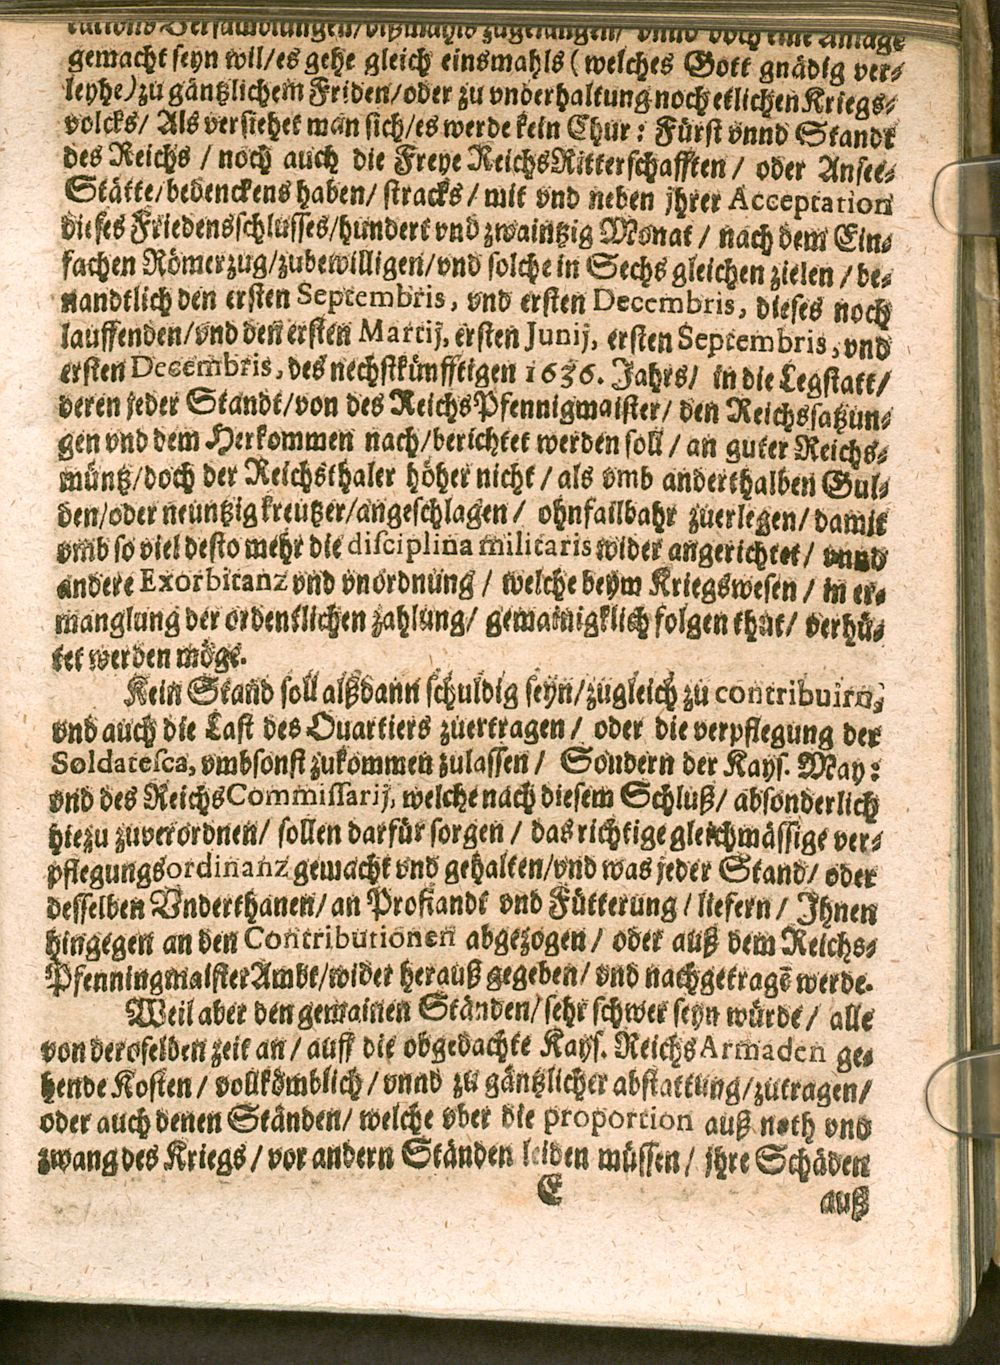 gemacht seyn will/es gehe gleich einsmahls (welches Gott gnädig ver-
leyhe) zu gäntzlichem Friden/oder zu vnderhaltung noch etlichen Kriegs-
volcks/ Als verstehet man sich/es werde kein Chur: Fürst vnnd Standt
des Reichs / noch auch die Freye ReichsRitterschafften / oder Ansee-
Stätte/bedenckens haben/ stracks/ mit vnd neben jhrer Acceptation
dieses Friedensschlusses/hundert vnd zwaintzig Monat / nach dem Ein-
fachen Römerzug/zubewilligen/vnd solche in Sechs gleichen zielen / be-
nandtlich den ersten Septembris, vnd ersten Decembris, dieses noch
lauffenden/vnd den ersten Martij, ersten Junij, ersten Septembris, vnd
ersten Decembris, des nechstkünfftigen 1636. Jahrs/ in die Legstatt/
deren jeder Standt/von des ReichsPfennigmaister/ den Reichssatzun-
gen vnd dem Herkommen nach/berichtet werden soll / an guter Reichs-
müntz/doch der Reichsthaler höher nicht / als vmb anderthalben Gul-
den/oder neuntzig kreutzer/angeschlagen / ohnfailbahr zuerlegen/ damit
vmb so viel desto mehr die disciplina militaris wider angerichtet/ vnnd
andere Exorbitanz vnd vnordnung / welche beym Kriegswesen / in er-
manglung der ordentlichen zahlung/ gemainigklich folgen thut/ verhü-
tet werden möge.
Kein Stand soll alßdann schuldig seyn/zugleich zu contribuirn,
vnd auch die Last des Quartiers zuertragen / oder die verpflegung der
Soldatesca, vmbsonst zukommen zulassen / Sondern der Kays. May:
vnd des Reichs Commissarij, welche nach diesem Schluß/ absonderlich
hiezu zuverordnen/ sollen darfür sorgen / das richtige gleichmässige ver-
pflegungsordinanz gemacht vnd gehalten/vnd was jeder Stand/ oder
desselben Vnderthanen/ an Profiandt vnd Fütterung / liefern / Ihnen
hingegen an den Contributionen abgezogen / oder auß dem Reichs-
PfenningmaisterAmbt/wider herauß gegeben/ vnd nachgetragē werde.
Weil aber den gemainen Ständen/ sehr schwer seyn würde / alle
von deroselben zeit an / auff die obgedachte Kays. Reichs Armaden ge-
hende Kosten / vollkömblich / vnnd zu gäntzlicher abstattung/zutragen/
oder auch denen Ständen/ welche vber die proportion auß noth vnd
zwang des Kriegs / vor andern Ständen leiden müssen / jhre Schäden
E auß